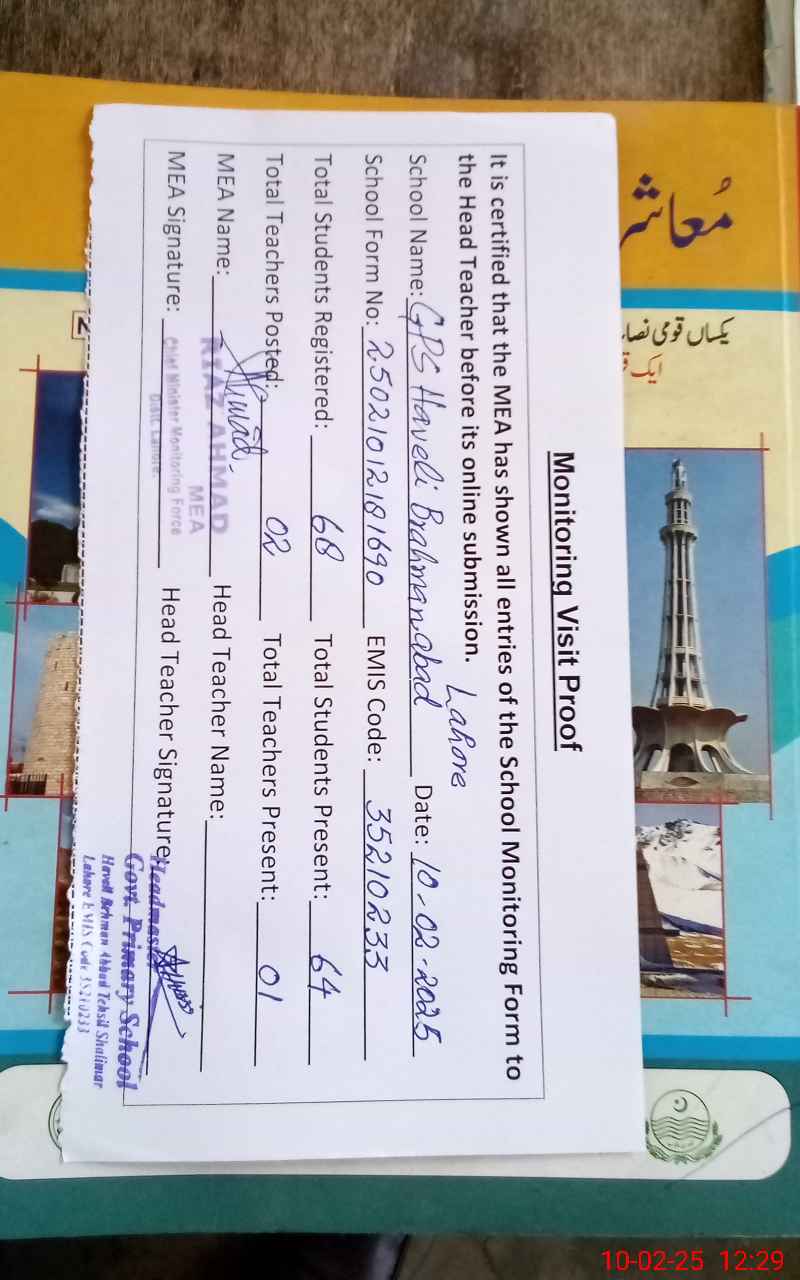 Monitoring Visit Proof
It is certified that the MEA has shown all entries of the School Monitoring Form to
the Head Teacher before its online submission.
Lahore
School Name: GPS Haveli Brahmanabad Date: 10-02-2025
School Form No: 25021012181690 EMIS Code: 35210233
Total Students Registered: 68 Total Students Present: 64
Total Teachers Posted: 02 Total Teachers Present: 01
MEA Name: Head Teacher Name:
Ahmad
RIAZ AHMAD
MEA
MEA Signature: Head Teacher Signature:
Chief Minister Monitoring Force
Distt. Lahore.
Headmaster
Govt. Primary School
Haveli Behman Abbad Tehsil Shalimar
Lahore EMIS Code 35210233
یکساں قومی نصا
ایک
10-02-25 12:29